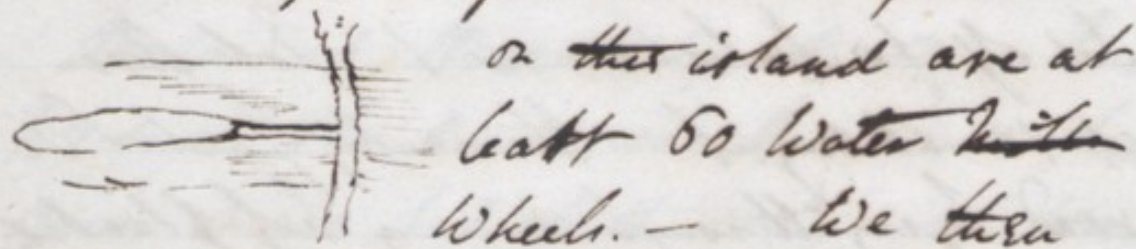 on this island are at
least 60 Water Mills
Wheels. — We then